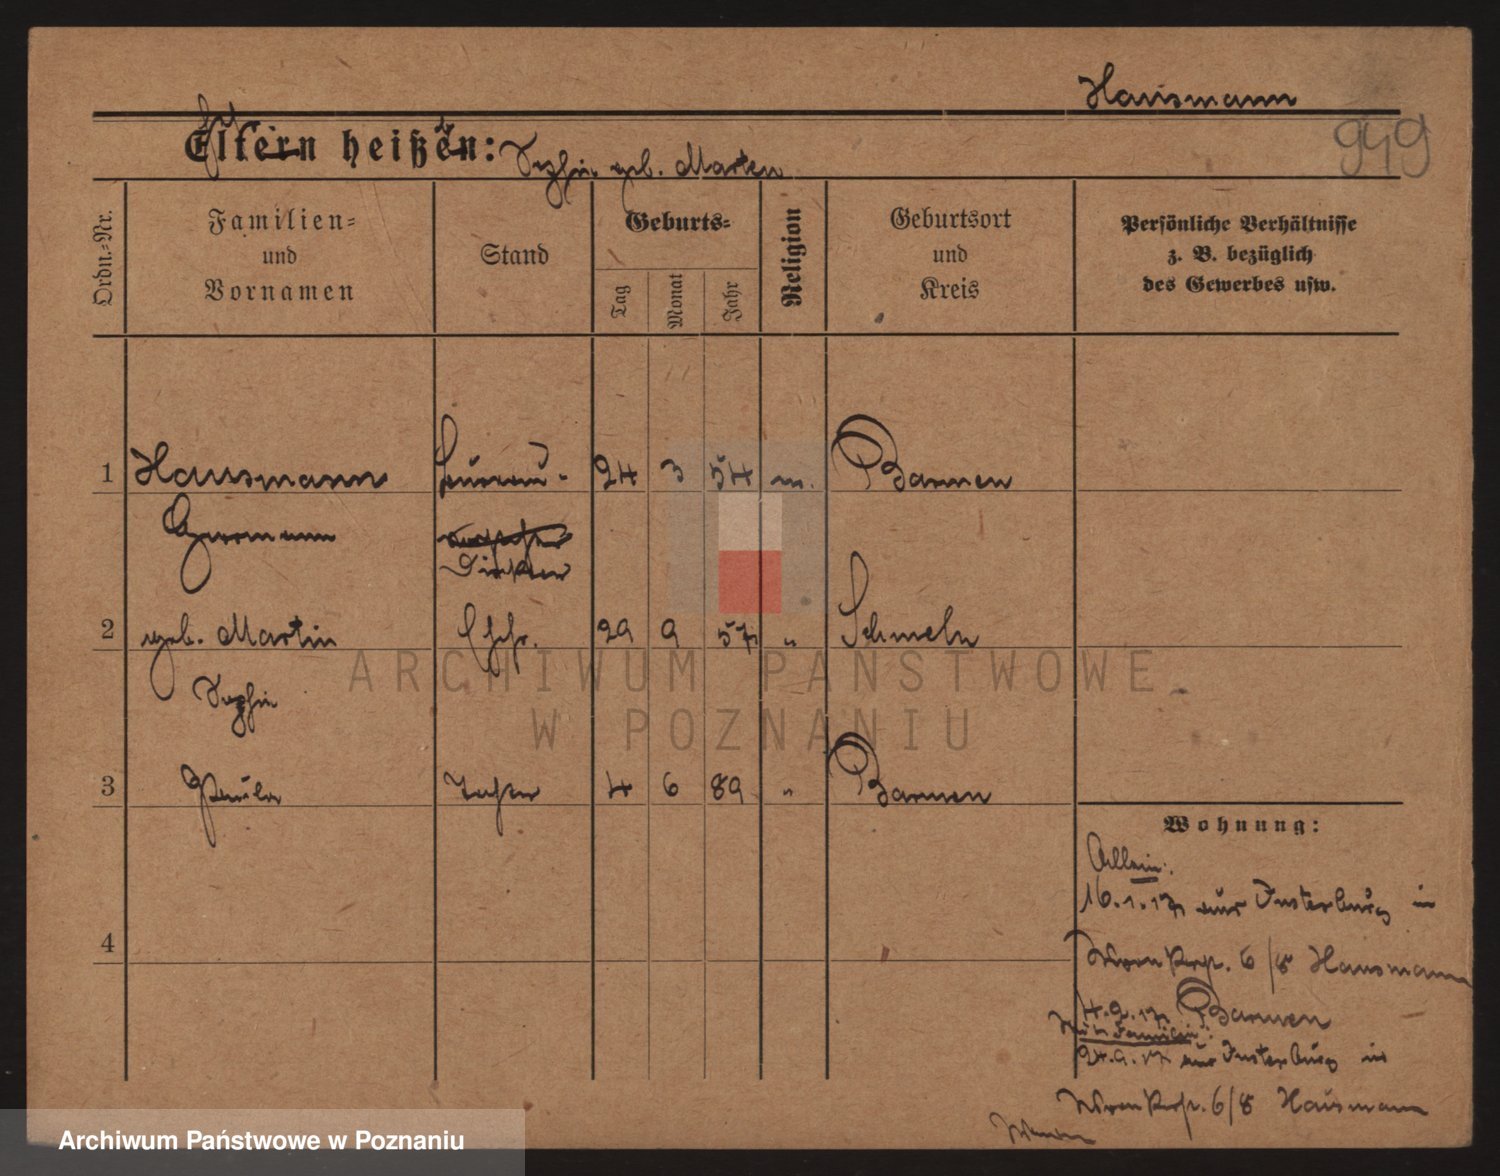 Hausmann
949
Eltern heißen: Sophie geb. Marten
Ordn.=Nr.
Familien=
und
Vornamen
Stand
Geburts=
Tag
Monat
Jahr
Religion
Geburtsort
und
Kreis
Persönliche Verhältnisse
z. B. bezüglich
des Gewerbes usw.
1 Hausmann 24 3 54 Barmen
Hermann
Direktor
2 geb. Martin Ehefr. 29 9 57 " Schwelm
Sophie
3 Paula Tochter 4 6 89 " Barmen
4
Wohnung:
Allein:
16.1.17 aus Insterburg in
6/8 Hausmann
4.2.17 Barmen
Familie:
24.9.17 aus Insterburg in
6/8 Hausmann
ARCHIWUM PAŃSTWOWE
W POZNANIU
Archiwum Państwowe w Poznaniu